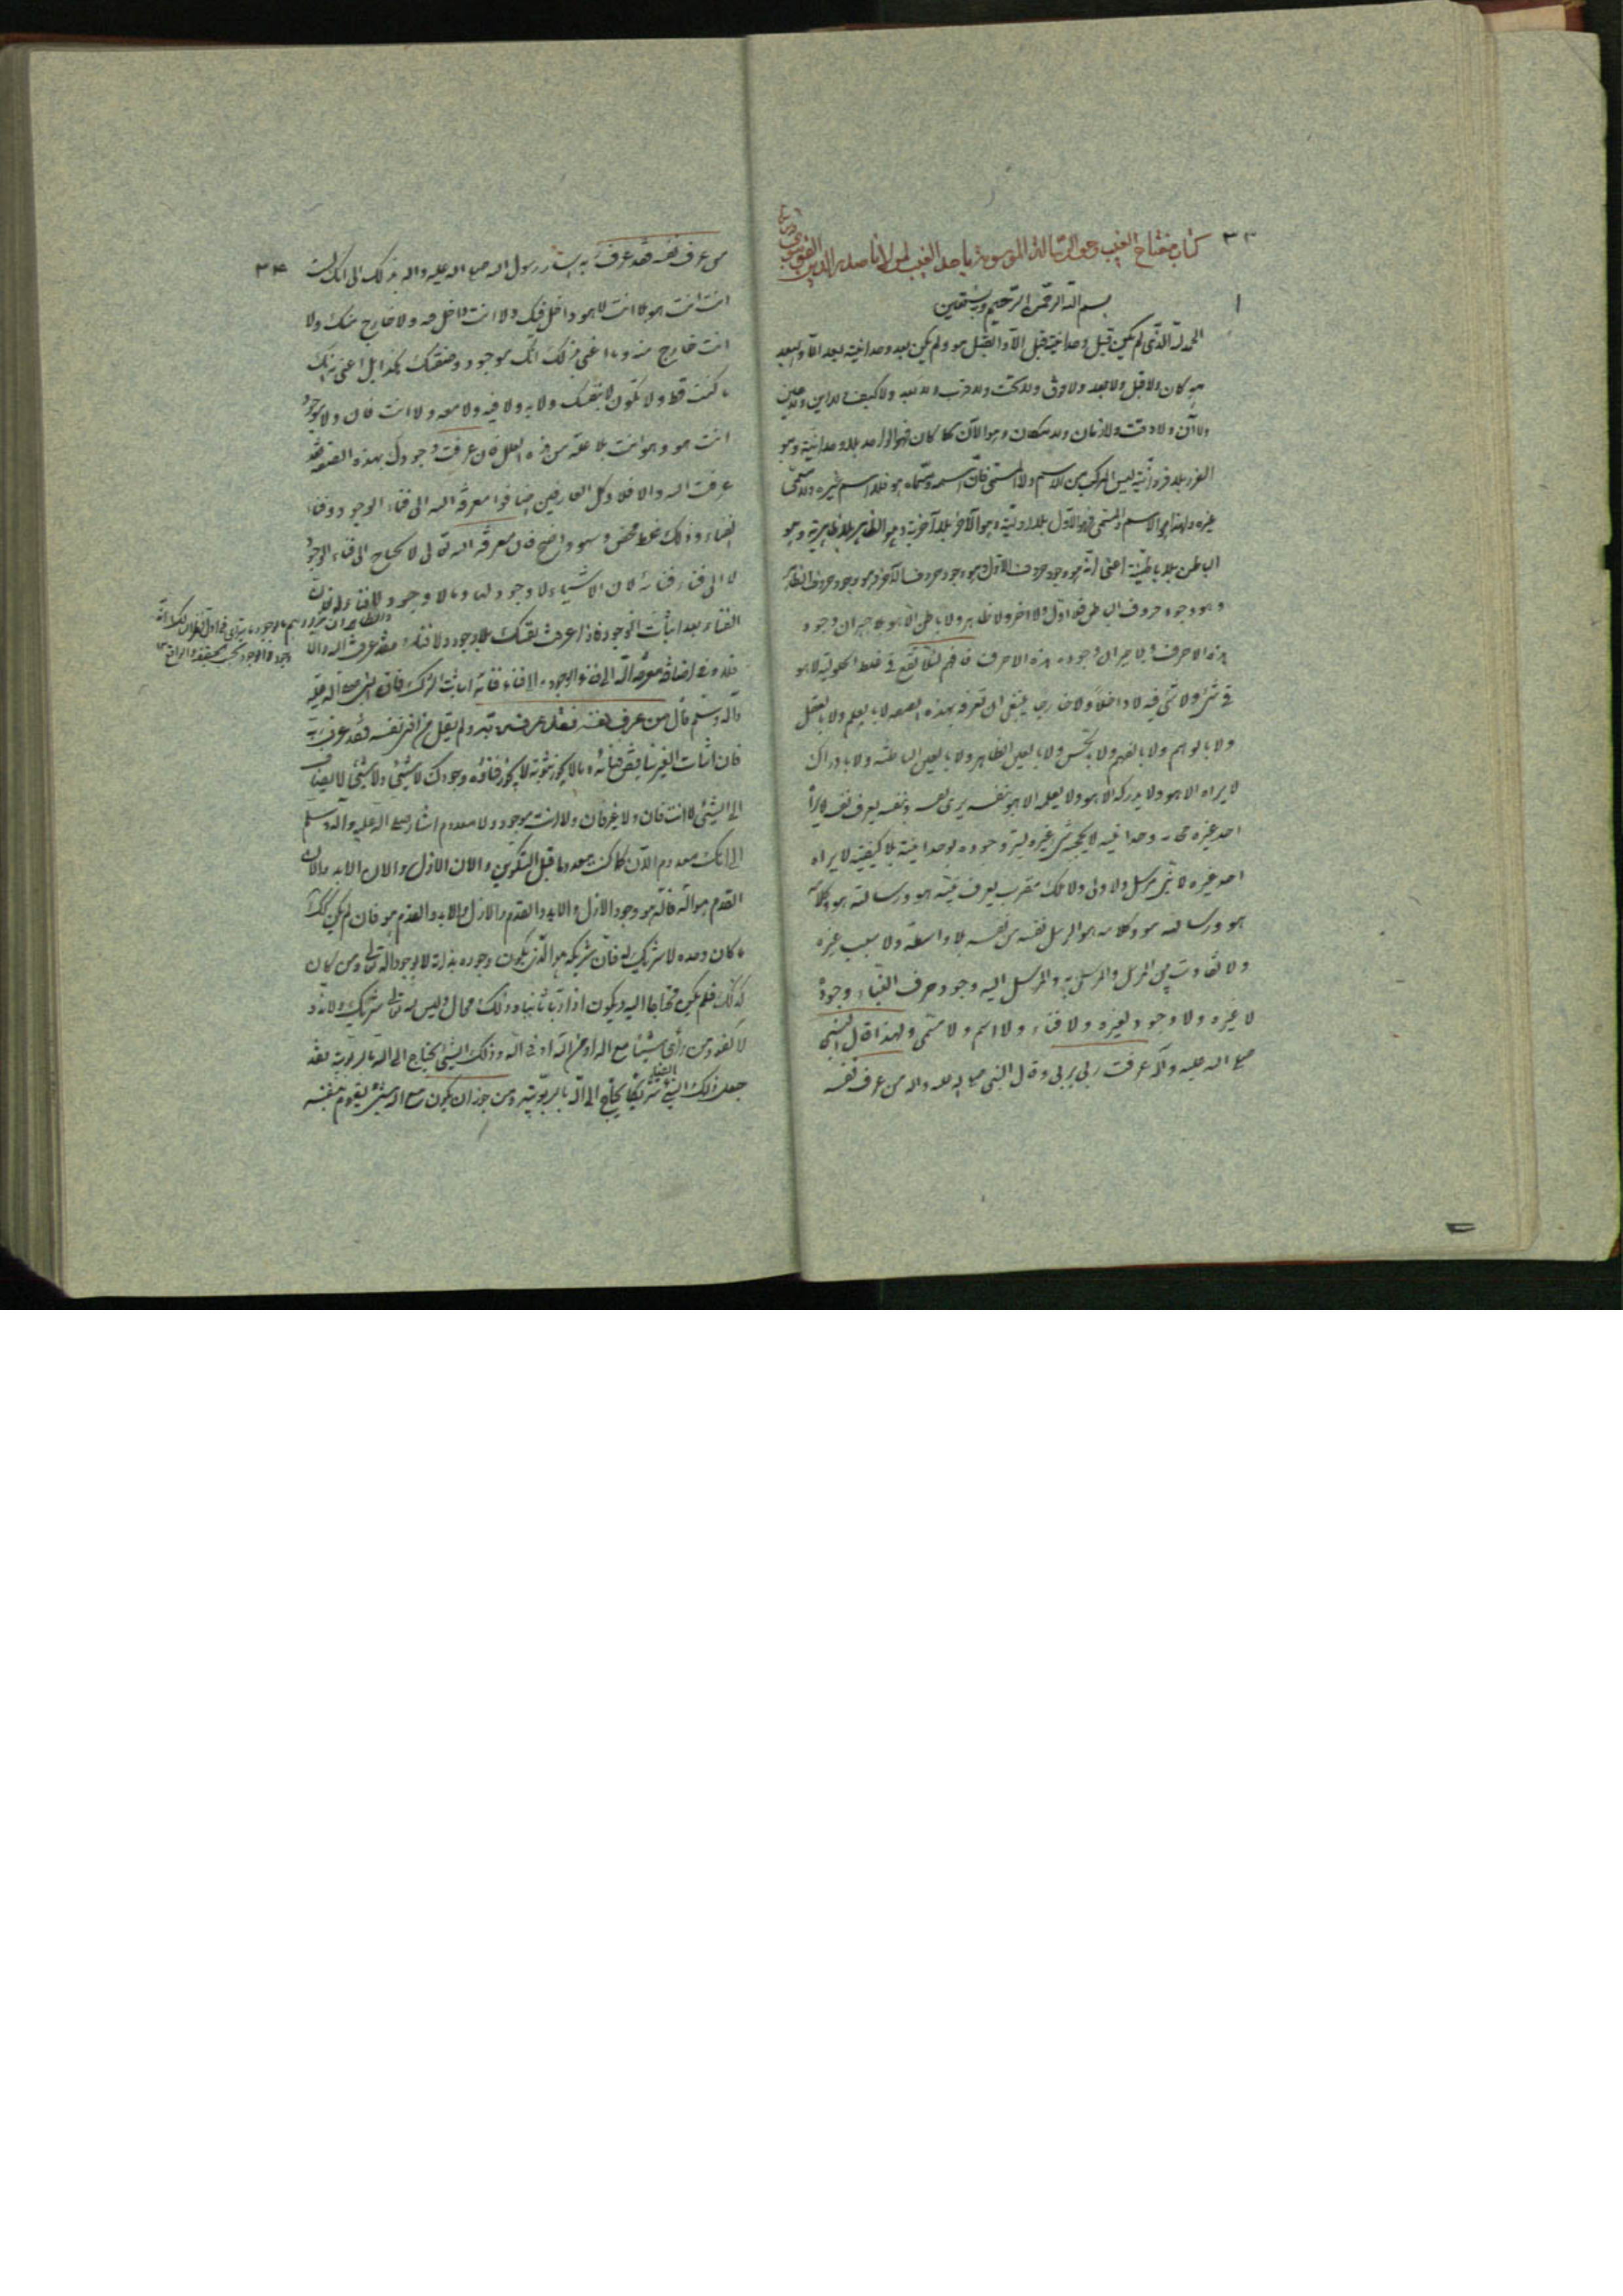 ٣٣
كتاب مفتاح الغيب وهو الرسالة الموسومة باحد الغيب لمولانا صدر الدين القونوي
بسم الله الرحمن الرحيم وبه نستعين
الحمد لله الذي لم يكن قبل وحدانيته قبل الا والقبل هو ولم يكن بعد وحدانيته بعد الا والبعد
هو كان ولا قبل ولا بعد ولا فوق ولا تحت ولا قرب ولا بعد ولا كيف ولا اين ولا حين
ولا آن ولا وقت ولا زمان ولا مكان وهو الآن كما كان فهو الواحد بلا وحدانية وهو
الفرد بلا فردانية ليس المركب من الاسم ولا المسمى فان اسمه ومسماه هو فلا اسم غيره ولا مسمى
غيره ولهذا هو الاسم والمسمى فهو الاول بلا اولية وهو الآخر بلا آخرية وهو الظاهر بلا ظاهرية وهو
الباطن بلا باطنية اعنى انه هو وجود حروف الاول وهو وجود حروف الآخر وهو وجود حروف الظاهر
وهو وجود حروف الباطن فلا اول ولا اخر ولا ظاهر ولا باطن الا هو بلا صيران وجوده
هذه الاحرف ولا صيران وجوده هذه الاحرف فافهم لئلا تقع في غلط الحلولية لا هو
في شئ ولا شئ فيه لا داخلا ولا خارجا ينبغى ان تعرفه بهذه الصفة لا بالعلم ولا بالعقل
ولا بالوهم ولا بالفهم ولا بالحس ولا بالعين الظاهر ولا بالعين الباطنة ولا بادراك
لا يراه الا هو ولا يدركه الا هو ولا يعلمه الا هو بنفسه يرى نفسه وبنفسه يعرف نفسه لا يراه
احد غيره حجابه وحدانيته لا يحجبه شئ غيره يستر وجوده بوحدانيته بلا كيفية لا يراه
احد غيره لا نبي مرسل ولا ولى ولا ملك مقرب يعرف نبيه هو ورسالته هو وكلامه
هو ورسالته هو وكلامه هو ارسل نفسه من نفسه بلا واسطة ولا سبب غيره
ولا تفاوت بين المرسل والمرسل به والمرسل اليه وجود حرف الفناء وجوده
لا غيره ولا وجود لغيره ولا فناء ولا اسم ولا مسمى ولهذا قال النبي
صلى الله عليه وآله عرفت ربي بربي وقال النبي صلى الله عليه واله من عرف نفسه
٣٤
من عرف نفسه فقد عرف ربه اشار رسول الله صلى الله عليه واله بذلك الى انك لست
انت انت هو بلا انت لا هو داخل فيك ولا انت داخل فيه ولا خارج منك ولا
انت خارج منه وما اعنى بذلك انك موجود وصفتك هكذا بل اعنى به انك
ما كنت قط ولا تكون لا بنفسك ولا به ولا فيه ولا معه ولا انت فان ولا موجود
انت هو وهو انت بلا علة من هذه العلل فان عرفت وجودك بهذه الصفة فقد
عرفت الله والا فلا وكل العارفين اضافوا معرفة الله الى فناء الوجود وفناء
الفناء وذلك غلط محض وسهو واضح فان معرفة الله تعالى لا تحتاج الى فناء الوجود
لا الى فناء فنائه لان الاشياء لا وجود لها وما لا وجود له لا فناء له فان
الفناء بعد اثبات الوجود فاذا عرفت نفسك بلا وجود ولا فناء فقد عرفت الله والا
فلا وفي اضافة معرفة الله الى فناء الوجود والى فناء فنائه اثبات الشرك فان النبي صلى الله عليه
وآله وسلم قال من عرف نفسه فقد عرف ربه ولم يقل من افنى نفسه فقد عرف ربه
فان اثبات الغير يناقض فنائه وما لا يجوز ثبوته لا يجوز فناؤه وجودك لا شئ ولا شئ لا يضاف
الى الشئ لا انت فان ولا غير فان ولا انت موجود ولا معدوم اشار صلى الله عليه وآله وسلم
الى انك معدوم الآن كما كنت معدوما قبل التكوين والان الازل والان الابد والان
القدم هو الله فالله هو وجود الازل والابد والقدم والازل والابد والقدم هو فان لم يكن كذلك
ما كان وحده لا شريك له فان شريكه هو الذى يكون وجوده بذاته لا بوجود الله تعالى ومن كان
كذلك فلم يكن محتاجا اليه ويكون اذا ربا ثانيا وذلك محال وليس لله تعالى شريك ولا ند و
لا كفو ومن رأى شيئا مع الله او من الله او في الله وذلك الشئ يحتاج الى الله بالربوبية فقد
جعل ذلك الشئ شريكا يحتاج الى الله بالربوبية ومن جوز ان يكون مع الله شئ يقوم بنفسه